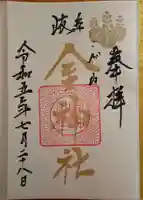 奉拝
こがね
金神社
令和五年七月二十八日